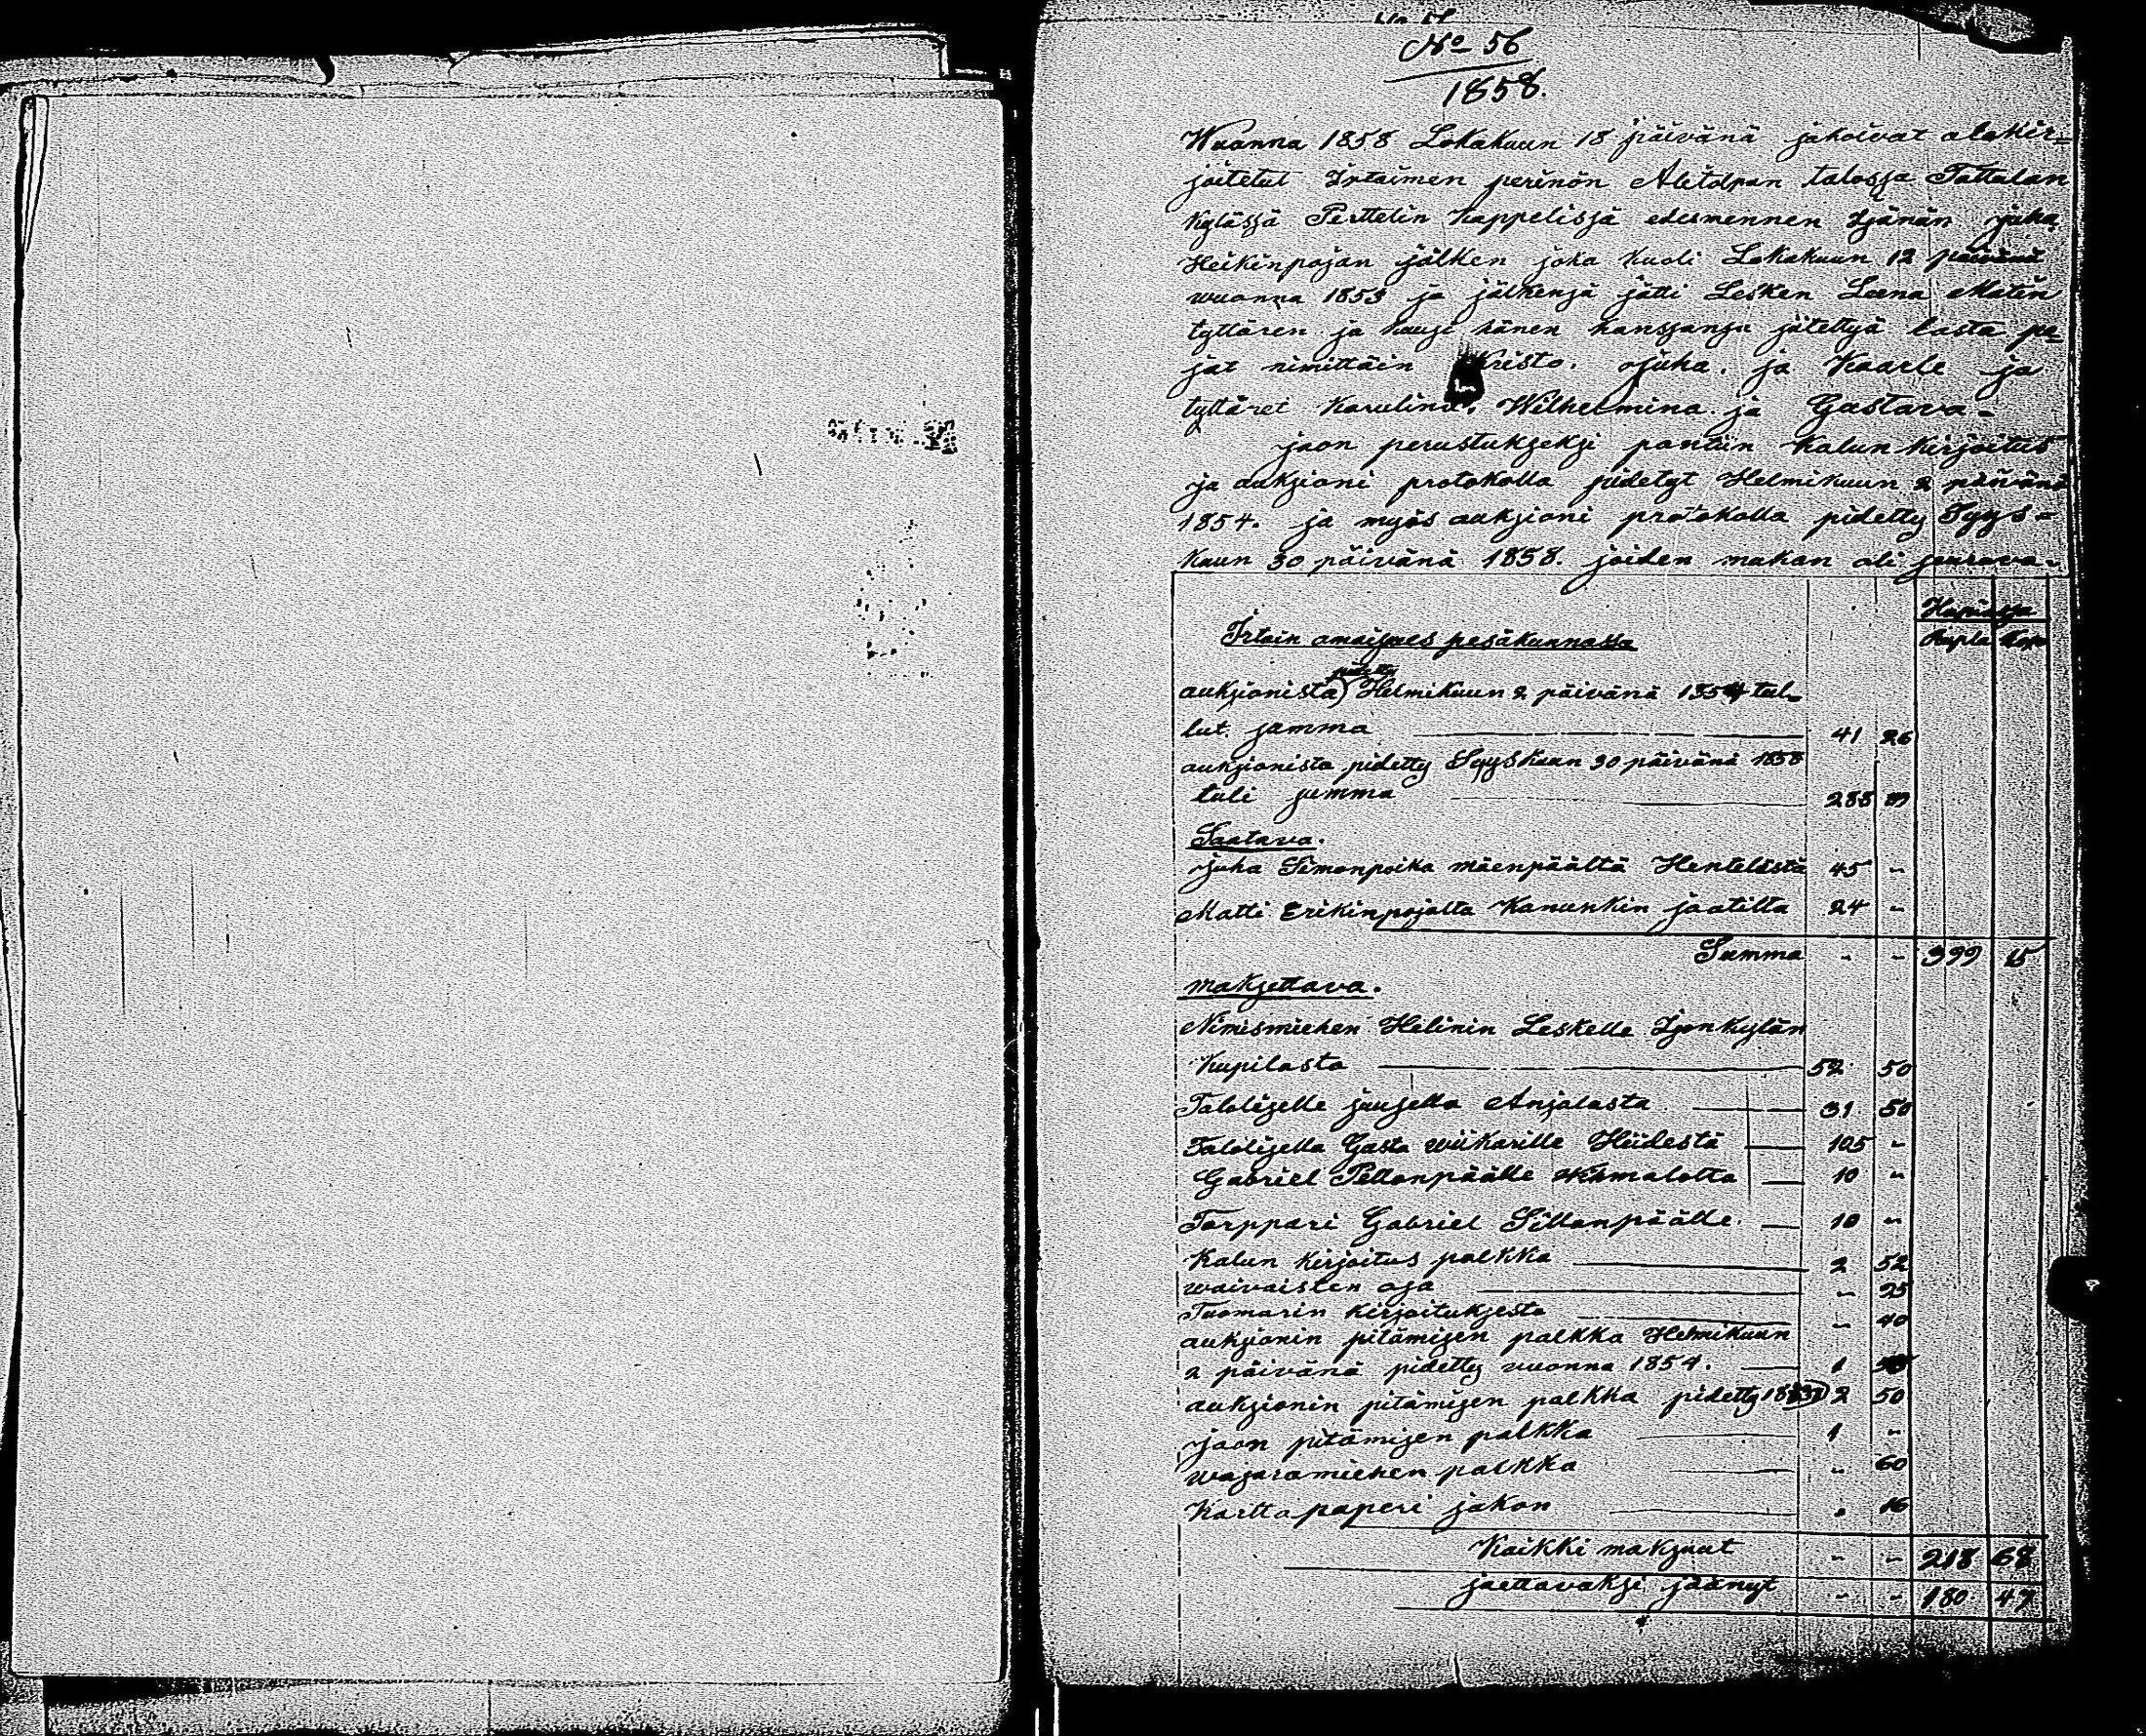 No 56
1858.
Wuonna 1858 Lokakuun 18 päivänä jakoivat alekir=
joitetut Irtaimen perinön Alitolpan talosja Tattulan
Kylässä Perttelin kappelisjä edesmennen Isjänän Juha
Heikinpojan jälken joka kuoli Lokakuun 12 päivänä
wuonna 1853 ja jälkensjä jätti Lesken Leena Matin
tyttären ja kuusi hänen kansjansja jätettyä lasta po=
jat nimittäin Kristo. Juha. ja Kaarle ja
tyttäret Karulina. Wilhelmina ja Gustava-
jaon perustuksjeksi pantiin Kalun Kirjoitus
ja auksjioni protokolla pidetyt Helmikuun 2 päivänä
1854. ja myös auksjioni protokolla pidetty Syys=
Kuun 30 päivänä 1858. joiden mukan oli seurava-
Hopiasja
Irtain omaisuus pesäkunnassa Rupla Kop
pidetty
auksjionista) Helmikuun 2 päivänä 1854 tul-
lut summa 41 26
auksjionista pidetty Syyskuun 30 päivänä 1858
tuli summa 288 89
Saatava.
Juha Simonpoika mäenpäältä Hentelästä 45 "
Matti Erikinpojalta Kanunkin jaatilta 24 "
Summa " " 399 15
maksjettava.
Nimismiehen Helinin Leskelle Isjonkylän
Kupilasta 52 50
Talolisjelle juusjella Anjalasta 31 50
Talolisjella Gusta wiikarille Hiidestä 105 "
Gabriel Pellonpäälle 10 "
Torppari Gabriel Sillanpäälle. 10 "
Kalun Kirjoitus palkka 2 52
waivaisten osja " 25
Tuomarin Kirjoituksjesta " 40
auksjionin pitämisjen palkka Helmikuun
2 päivänä pidetty wuonna 1854. 1
auksjionin pitämisjen palkka pidetty 1858 2 50
jaon pitämisjen palkka 1 "
wasjaramiehen palkka " 60
Kartta paperi jakon " 16
Kaikki maksjuut " " 218 68
jaettavaksji jäänyt " " 180 47